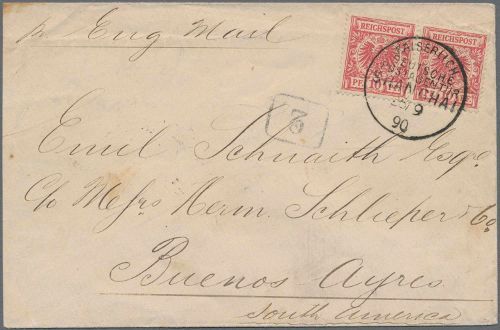 pr Eng Mail
REICHSPOST REICHSPOST
PFENNIG
KAISERLICH
DEUTSCHE
POSTAGENTUR
SHANGHAI
9
90
Emil Schnaith Esqre
C/o Messrs Herm. Schlieper & Co
Buenos Ayres
South America